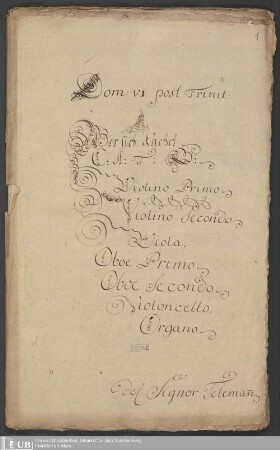 1
Dom: VI post Trinit.
Wer sich rächet
C: A: T: B:
Violino Primo
Violino Secondo
Viola.
Oboe Primo
Oboe Secondo
Violoncello.
Organo.
del Signor Teleman̄
UB
Universitätsbibliothek Johann Christian Senckenberg
Frankfurt am Main